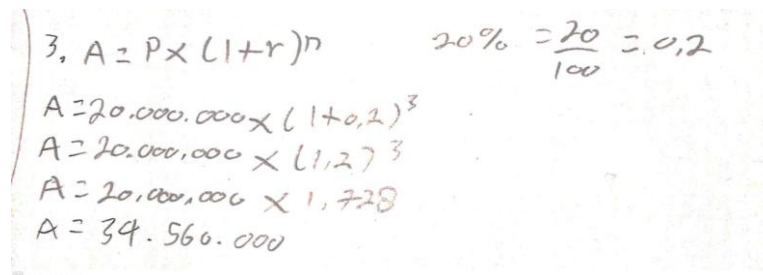 3. A = P x (1+r)ⁿ 20% = 20/100 = 0,2
A = 20.000.000 x (1+0,2)³
A = 20.000.000 x (1,2)³
A = 20.000.000 x 1,728
A = 34.560.000